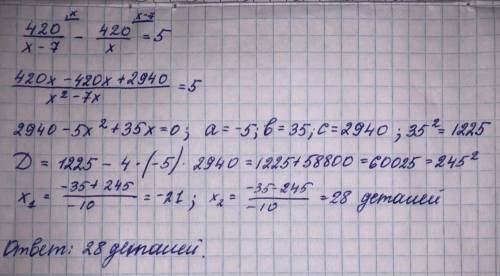 420/(x-7) ^x - 420/x ^(x-7) = 5
(420x - 420x + 2940)/(x² - 7x) = 5
2940 - 5x² + 35x = 0; a = -5; b = 35; c = 2940; 35² = 1225
D = 1225 - 4·(-5)·2940 = 1225 + 58800 = 60025 = 245²
x₁ = (-35 + 245)/(-10) = -21; x₂ = (-35 - 245)/(-10) = 28 деталей
Ответ: 28 деталей.